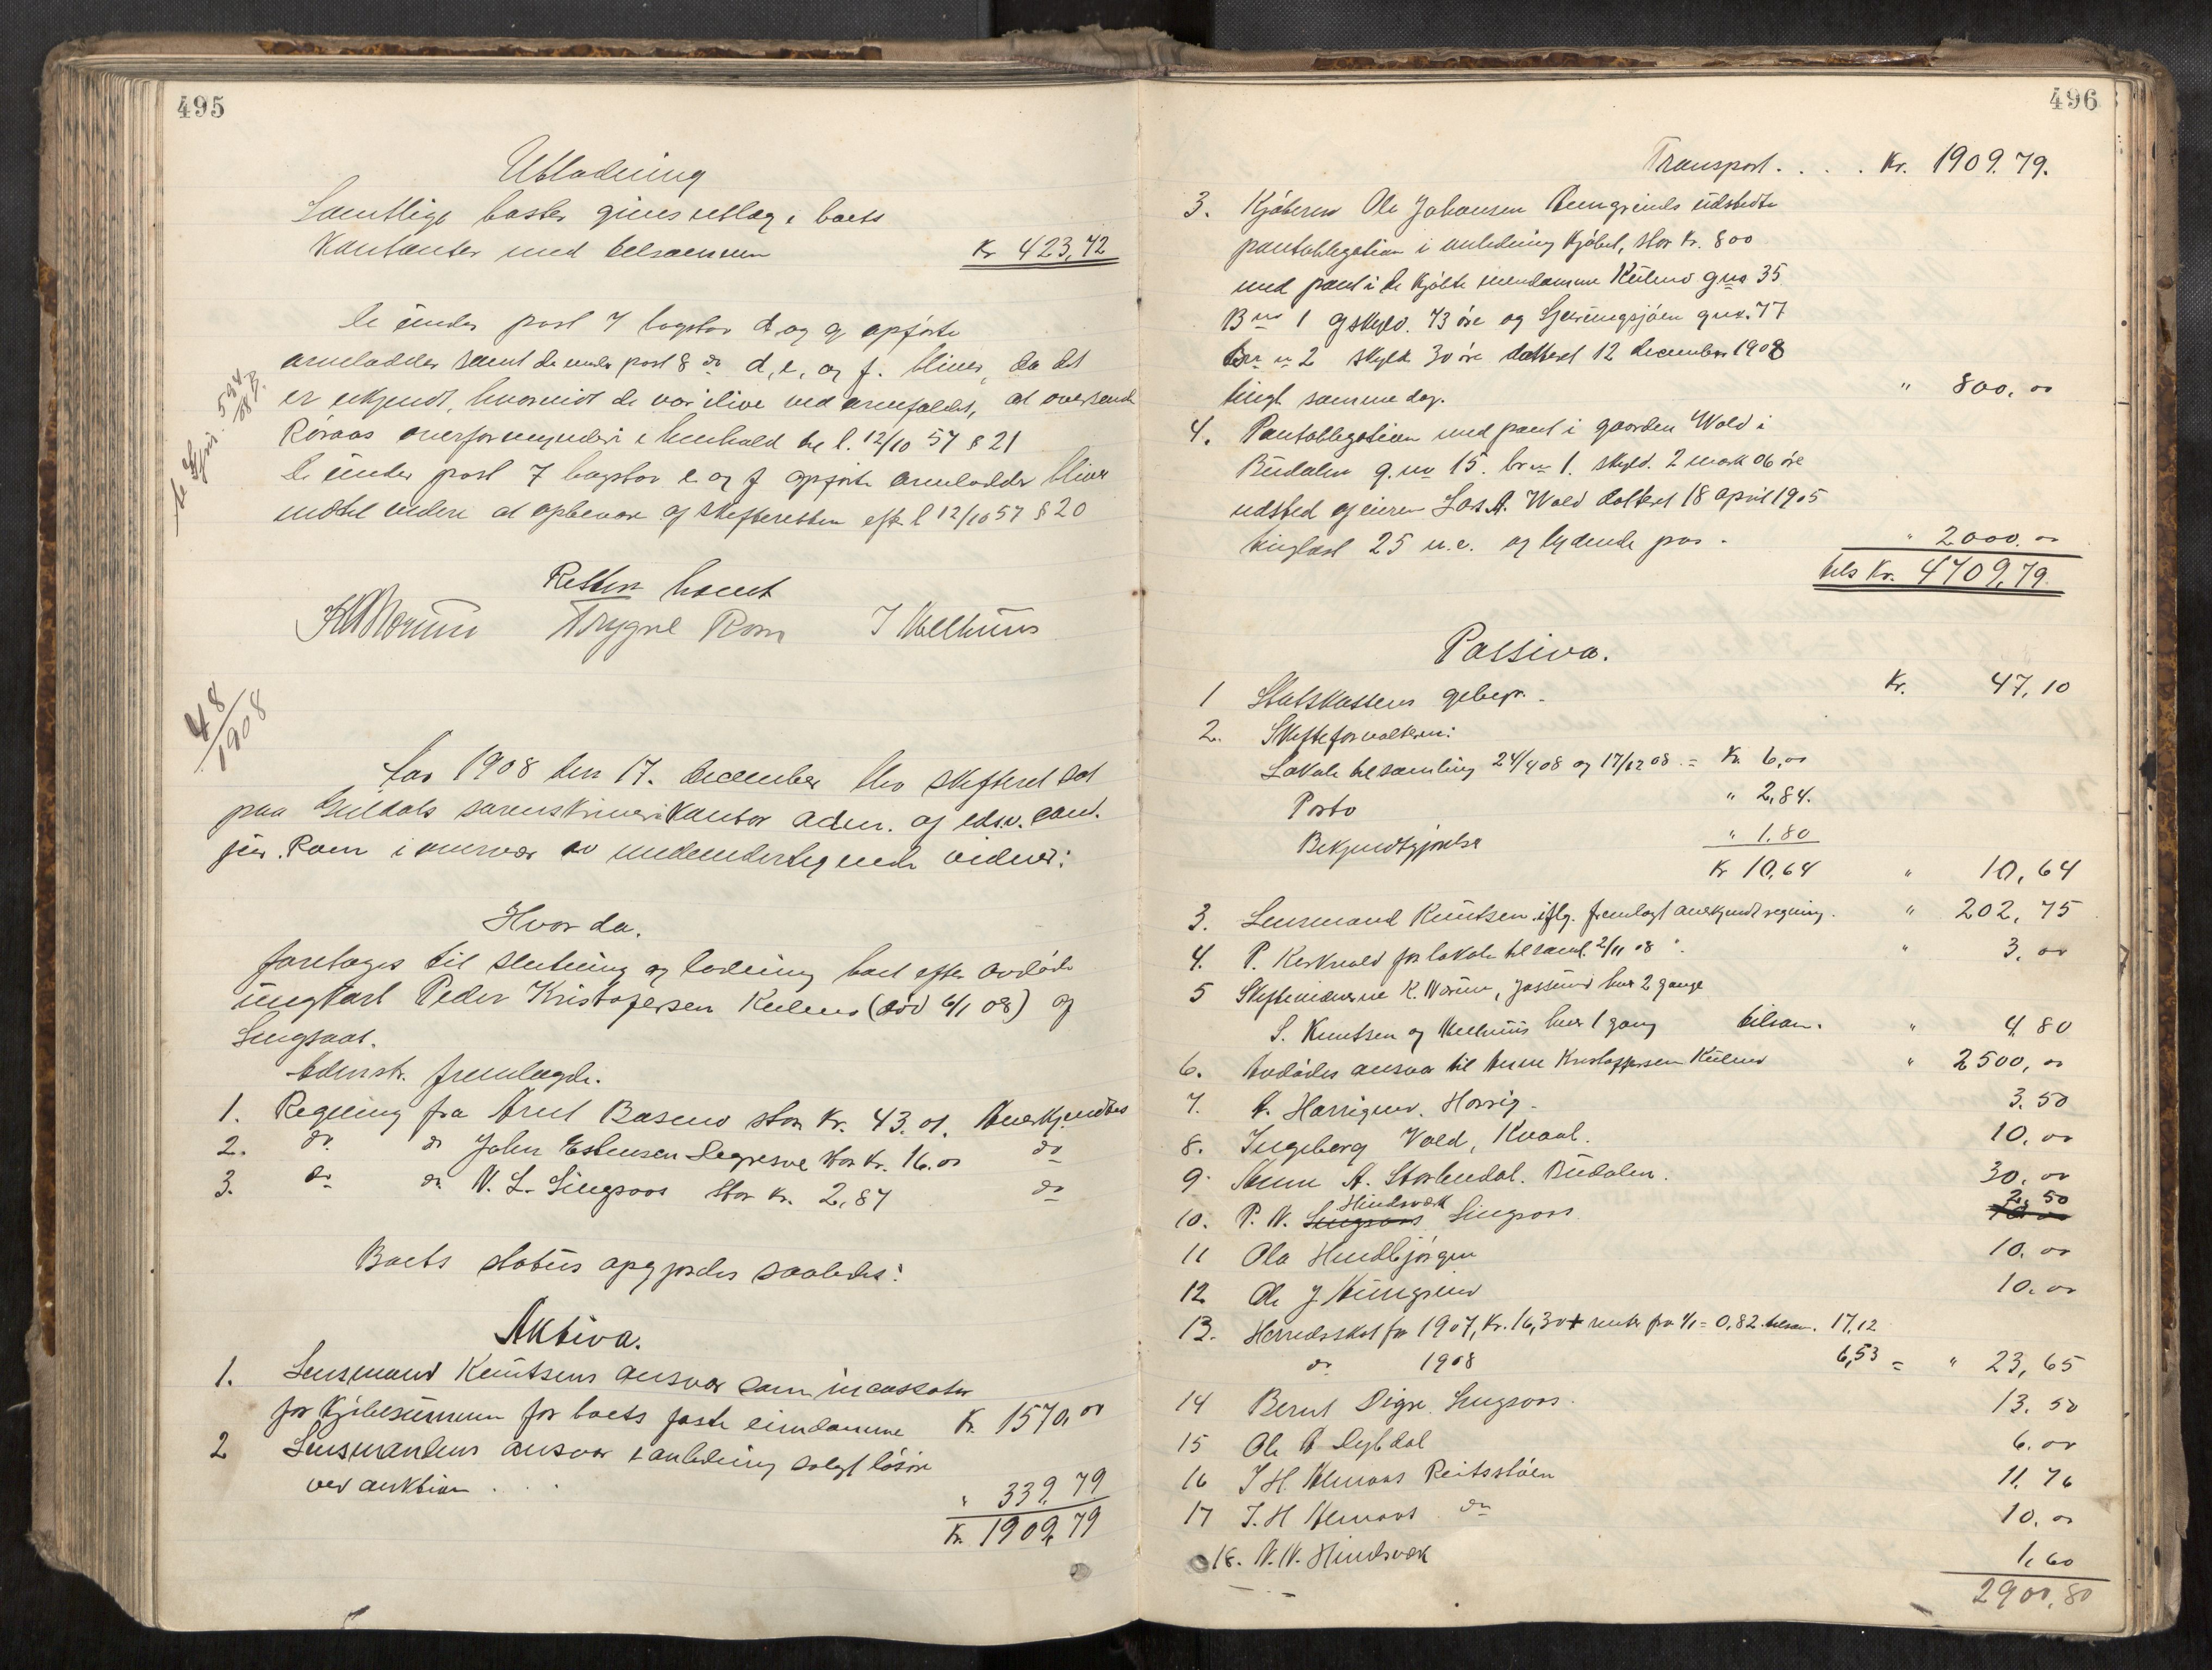 495
Utlodning
Samtlige poster gives utlæg i boets
Kontanter med tilsammen Kr 423,42
De under post 7 bogstav d og g opførte
arvelodder samt de under post 8 do d, e, og f. bliver, da det
er ukjendt, hvorvidt de var ilive ved arvefaldet, at oversende
Røraas overformynderi i henhold til l. 12/10 57 § 21
De under post 7 bogstav e og f opførte arvelodder bliver
indtil videre at opbevare af skifteretten efter l 12/10 57 § 20
Retten hævet
Trygve Rom J Melhuus
48/1908
Aar 1908 den 17. december blev skifteret sat
paa Guldals sorenskriverikontor adm. af eds.v. cand.
jur. Rom i overvær av medundertegnede vidner:
Hvor da.
foretoges til slutning og lodning boet efter avdøde
ungkarl Peder Kristofersen Kulens (død 6/1 08) af
Singsaas.
Adminstr. fremlagde.
1. Regning fra Arnt Basmo stor Kr. 43.01. Anerkjendtes
2. do. do John Estensen Digresve stor Kr. 16.00 do
3. do do N. L. Singsaas stor Kr. 2,87 do
Boets status opgjordes saaledes:
Aktiva.
1. Lensmand Knutsens ansvar som incassator
for kjøbesummen for boets faste eiendomme Kr. 1570,00
2 Lensmandens ansvar i anledning solgt løsøre
ved auktion . . . " 339,79
Kr. 1909,79
496
Transport. . . . Kr. 1909.79.
3. Kjøberen Ole Johansen Aungrinds udstedte
pantobligation i anledning kjøbet, stor Kr. 800
med pant i de kjøbte eiendomme Kulens gno 35
Bno 1 af skyld. 73 øre og gno. 77
Bno 2 skyld 30 øre datteret 12 december 1908
tingl. samme dag. " 800,00
4. Pantobligation med pant i gaarden Wold i
Budalen g.no 15. br.no 1. skyld. 2 mark 06 øre
udsted af eieren Lars A. Wold datteret 18 april 1905
tinglæst 25 n.e. og lydende paa . " 2000.00
tils Kr. 4709,79.
Passiva.
1 Statskassens gebyr. Kr. 47,10
2. Skifteforvalteren:
Lokale til samling 24/4 08 og 17/12 08 = Kr. 6,00
Porto " 2,84.
Bekjendtgjørelse " 1.80
Kr 10,64 " 10,64
3. Lensmand Knutsen iflg. fremlagt anerkjendt regning. " 202,75
4. P. Kirkvold for lokale til saml. 2/11 08 " 3,00
5 Skiftevidnerne K. Norum, Jossund hver 2 gange
S. Knutsen og Melhuus hver 1 gang tilsam. " 4,80
6. Avdødes ansvar til Anne Kristoffersen Kulens " 2500,00
7. A. Horrigmo. Horrig. 3.50
8. Ingeborg Vold, Kvaal. 10,00
9. Anne A. Storbudal. Budalen. 30,00
10. P. N. Singsaas Hindsvæk Singsaas 2,50
11 Ola Hindbjørgen 10.00
12 Ole J Aungrind 10.00
13. Herredsskat for 1907, Kr. 16,30 + renter fra 1/1 = 0,82 tilsam. 17,12
do 1908 6,53 = " 23,65
14 Bernt Digre Singsaas. 13.50
15 Ole A Dybdal 6.00
16 J H Almaas Reitsstøen 11,76
17 J. H Almaas do 10.00
18. N. N. Hindsvæk 1,60
2900,80